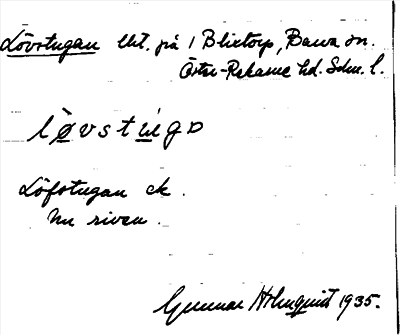 Lövstugan lht. på 1 Blixtorp, Barva sn.
Öster-Rekarne hd. Sdm. l.
lø̱vstu̱gɒ
Löfstugan ek.
Nu riven.
Gunnar Holmquist 1935.